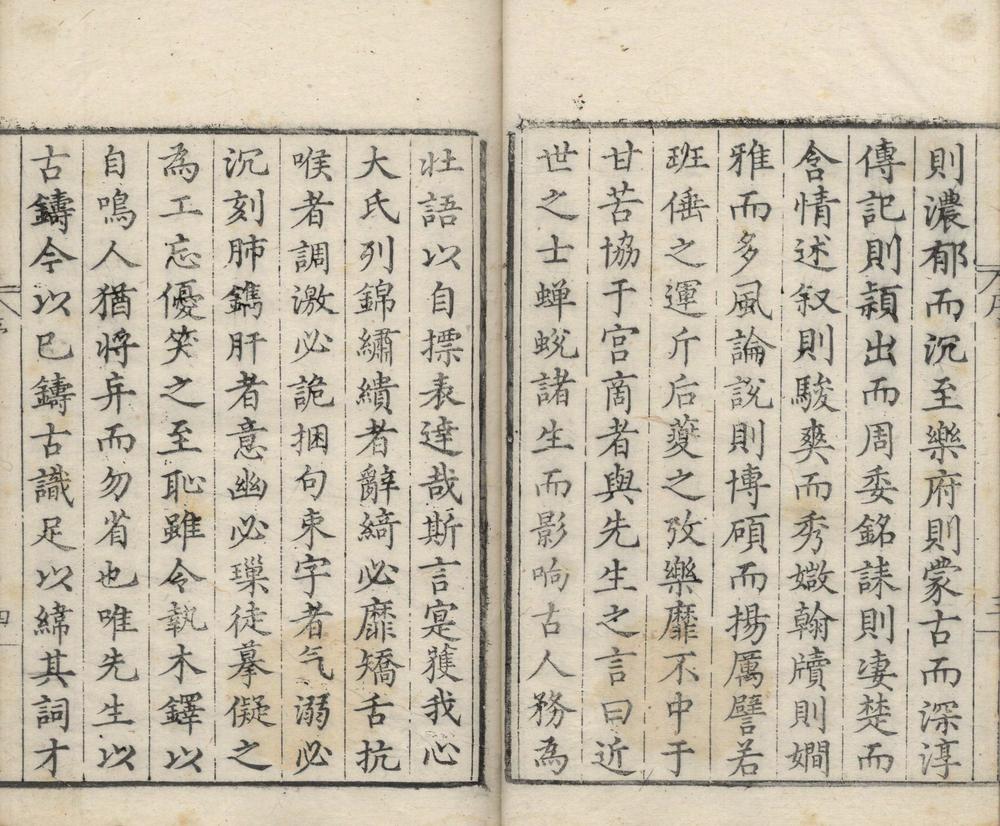 則濃郁而沉至樂府則蒙古而深淳
傳記則穎出而周委銘誄則凄楚而
含情述叙則駿爽而秀媺翰牘則嫺
雅而多風論説則博碩而揚厲譬若
班倕之運斤后夔之攷樂靡不中于
甘苦協于宫啇者與先生之言曰近
世之士蟬蛻諸生而影响古人務為
壯語以自摽表達哉斯言寔獲我心
大氏列錦繡繢者辭綺必靡矯舌抗
喉者調激必詭捆句束字者气溺必
沉刻肺鐫肝者意幽必璅徒摹儗之
為工忘優笑之至恥雖令執木鐸以
自鳴人猶将弃而勿省也唯先生以
古鑄今以巳鑄古識足以緯其詞才
四